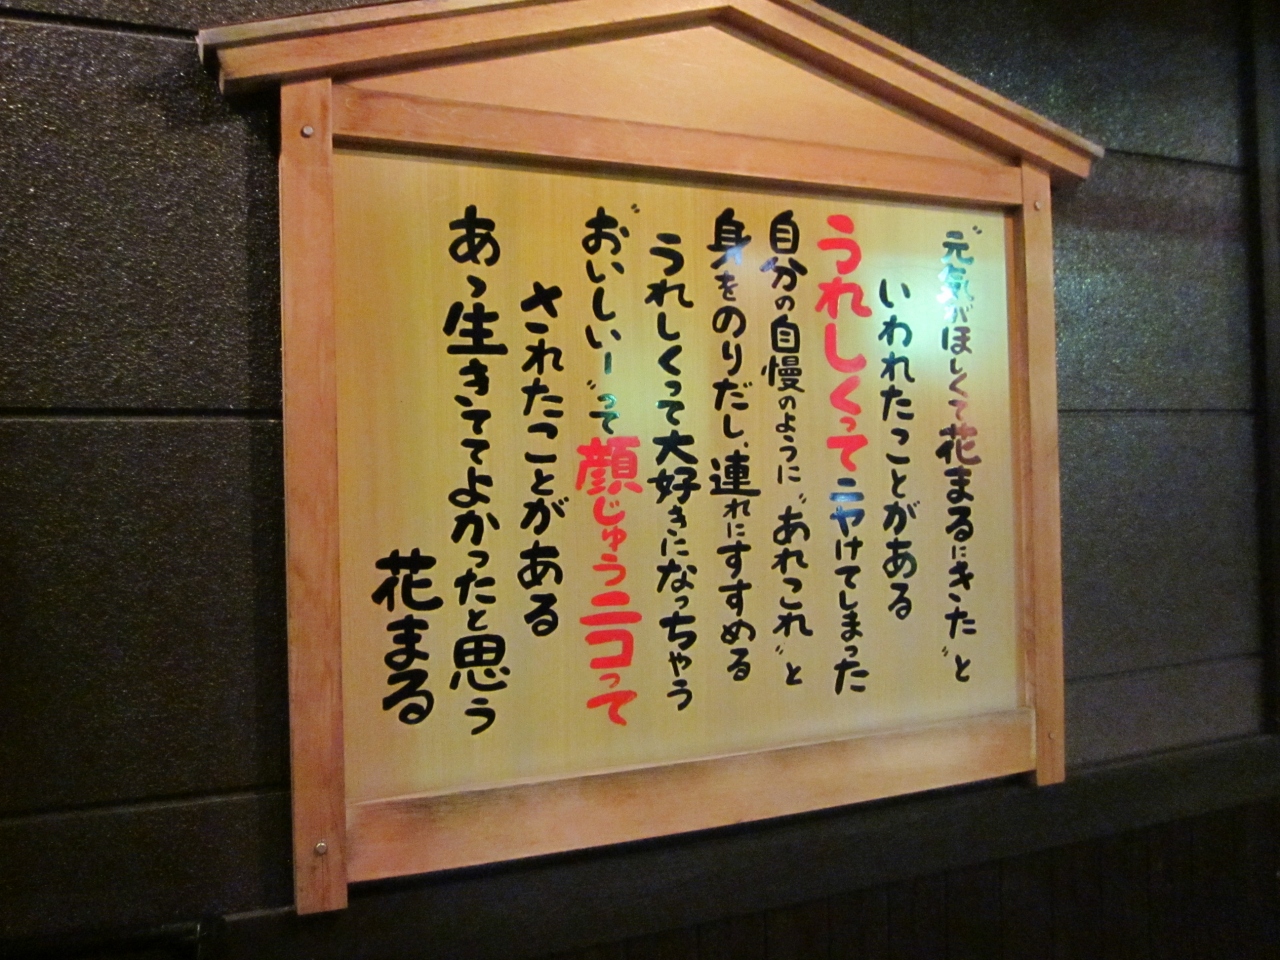 〝元気がほしくて花まるにきた〟と
いわれたことがある
うれしくってニヤけてしまった
自分の自慢のように〝あれこれ〟と
身をのりだし、連れにすすめる
うれしくって大好きになっちゃう
〝おいしいー〟って顔じゅうニコって
されたことがある
あっ生きててよかったと思う
花まる